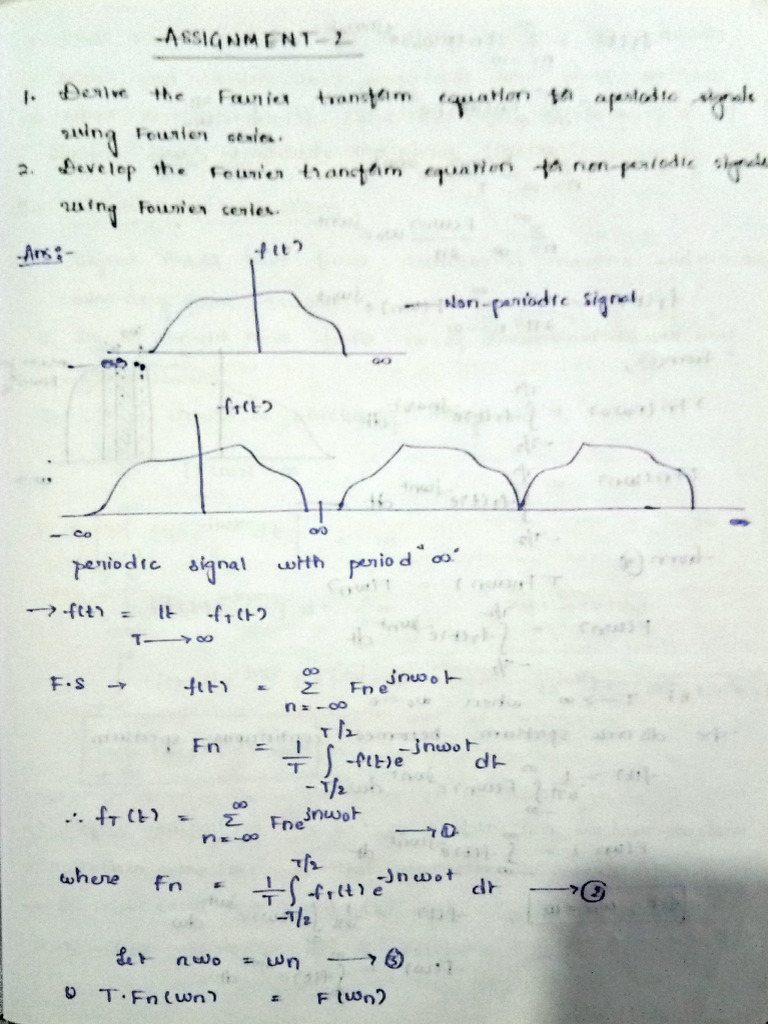 ASSIGNMENT-2
1. Derive the Fourier transform equation for aperiodic signals
using Fourier series.
2. Develop the Fourier transform equation for non-periodic signals
using Fourier series.
Ans:-
f(t)
Non-periodic signal
∞
fT(t)
-∞ ∞ ∞
periodic signal with period "∞"
→ f(t) = lt fT(t)
T→∞
F.S → f(t) = ∞∑n=-∞ Fn e^jnω0t
Fn = 1/T ∫-T/2^T/2 f(t)e^-jnω0t dt
∴ fT(t) = ∞∑n=-∞ Fn e^jnω0t → ①
where Fn = 1/T ∫-T/2^T/2 fT(t) e^-jnω0t dt → ②
Let nω0 = ωn → ③
T.Fn(ωn) = F(ωn)